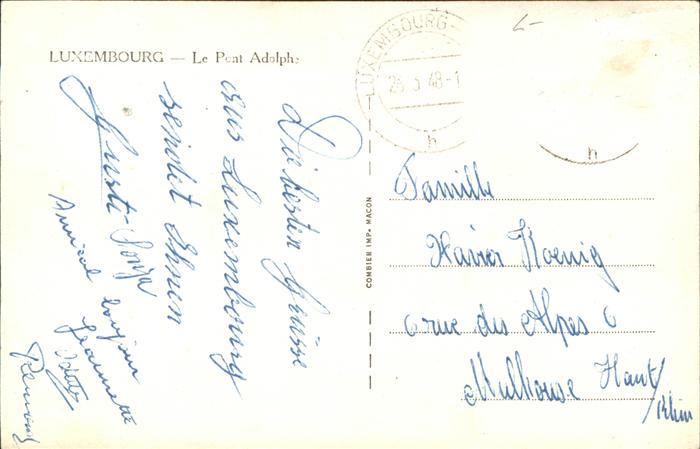 LUXEMBOURG — Le Pont Adolphe
LUXEMBOURG
48-1
h
h
COMBIER IMP. MACON
Die besten Grüsse
aus Luxembourg
sendet Ihnen
Gusti - Sonja
Amical bonjour
Jeannette
Famille
Xavier Koenig
6 rue des Alpes 6
Mulhouse Haut/
Rhin